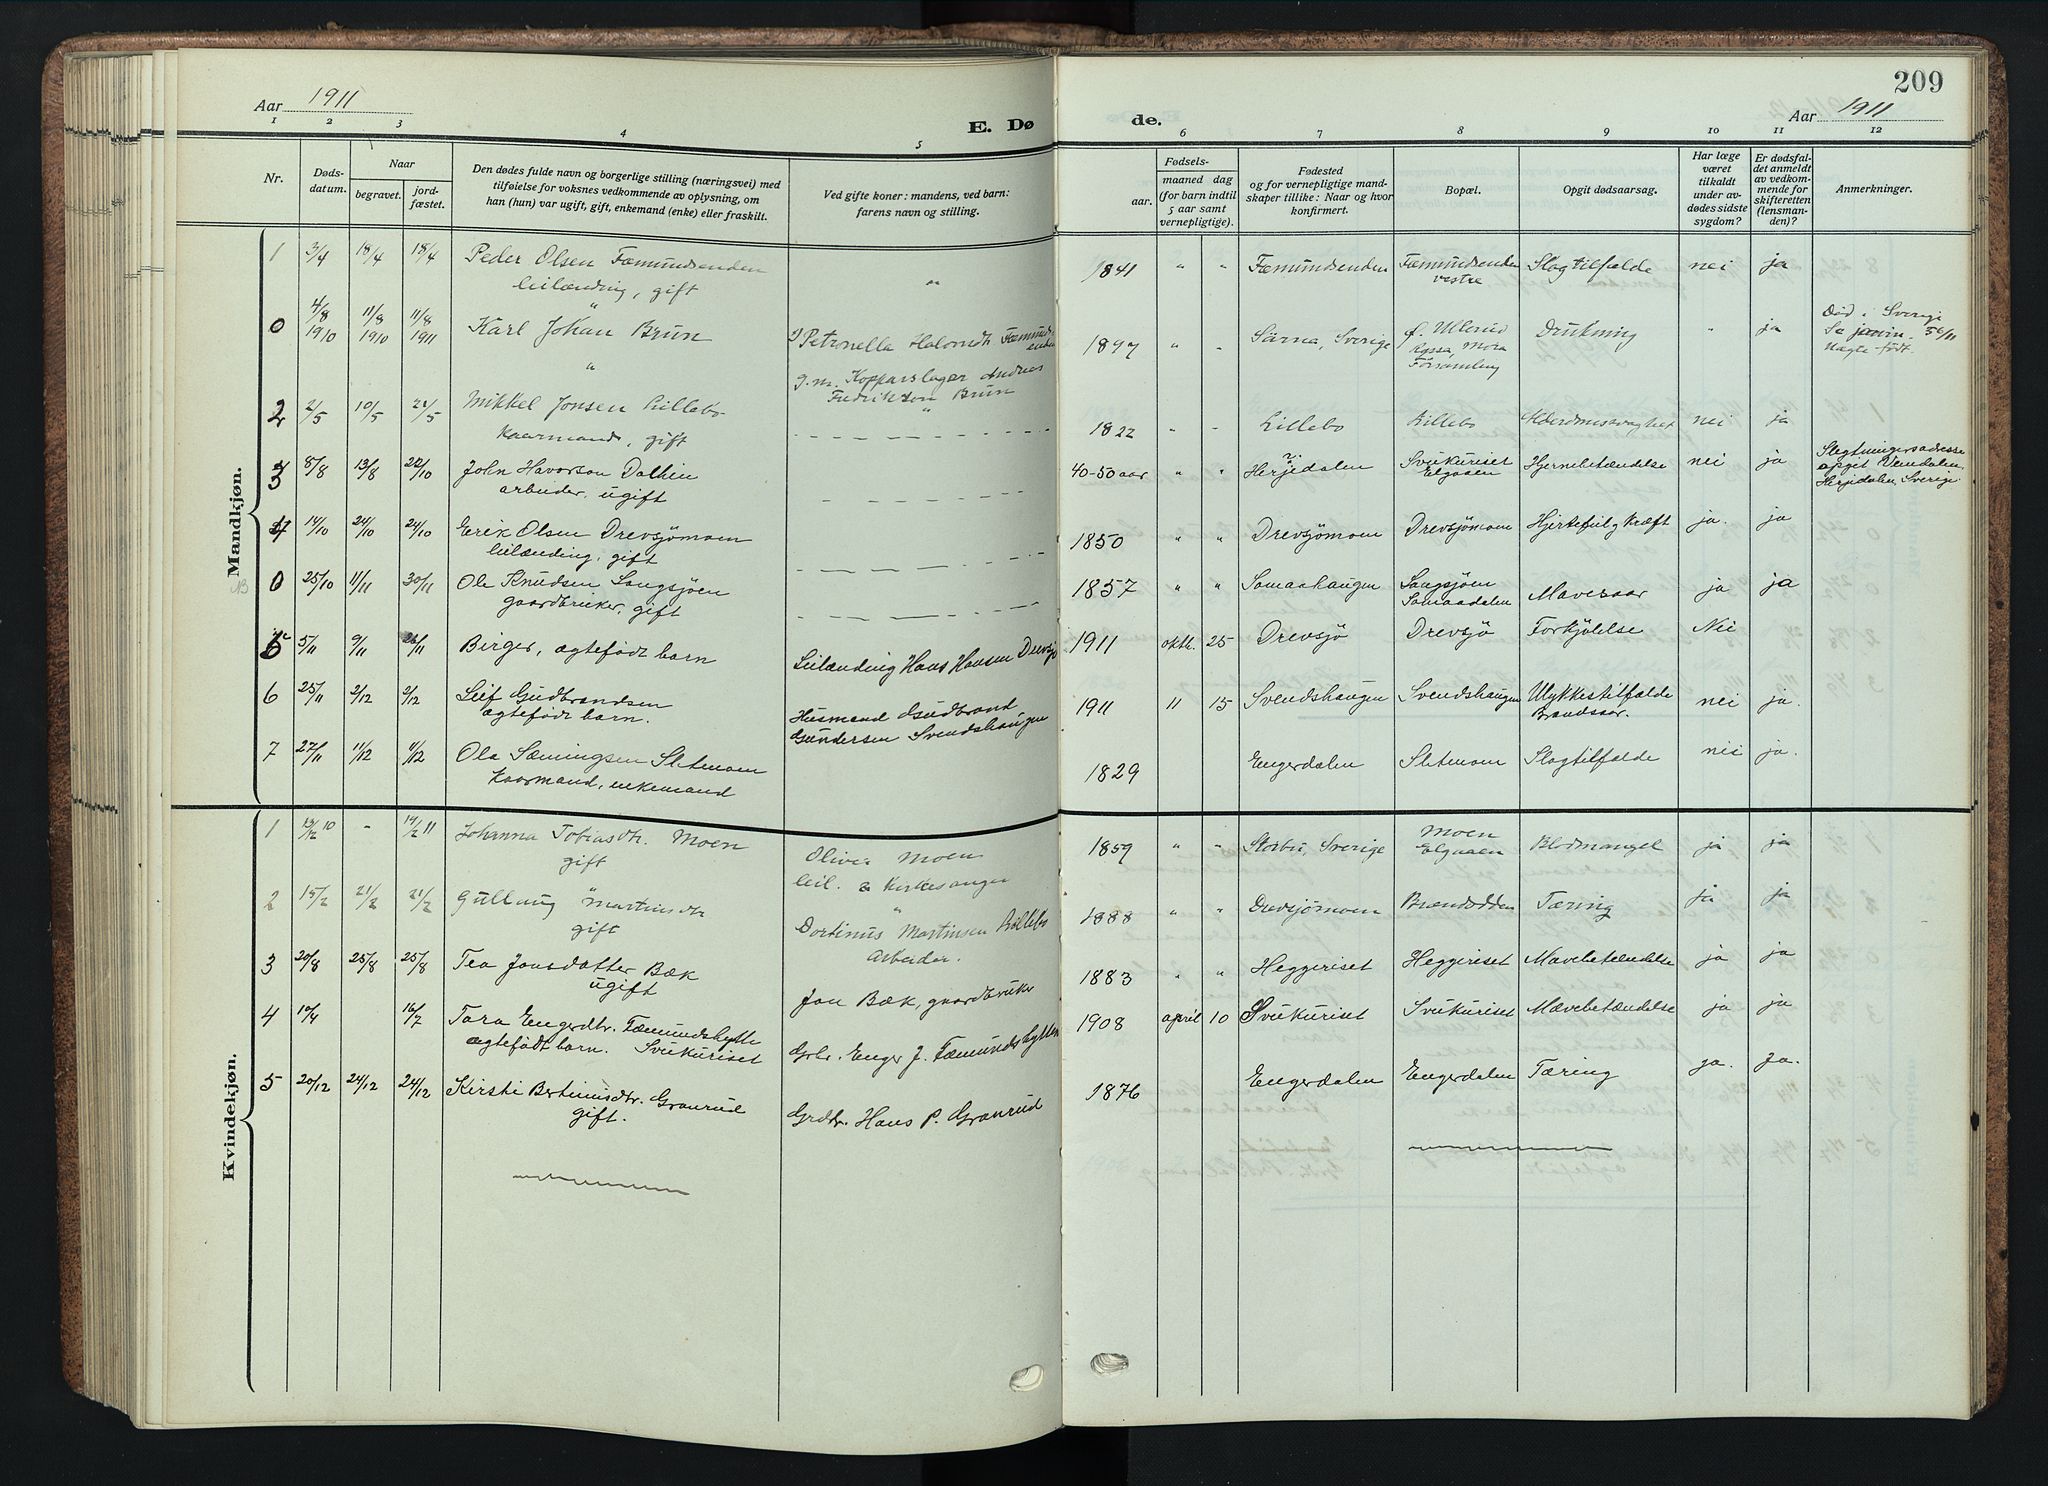 Aar 1911
E. Dø
de.
209
Aar 1911
1 2 3 4 5 6 7 8 9 10 11 12
Nr.
Døds-
datum.
Naar
begravet.
jord-
fæstet.
Den dødes fulde navn og borgerlige stilling (næringsvei) med
tilføielse for voksnes vedkommende av oplysning, om
han (hun) var ugift, gift, enkemand (enke) eller fraskilt.
Ved gifte koner: mandens, ved barn:
farens navn og stilling.
Fødsels-
aar.
maaned dag
(for barn indtil
5 aar samt
vernepligtige).
Fødested
og for vernepligtige mand-
skaper tillike: Naar og hvor
konfirmert.
Bopæl.
Opgit dødsaarsag.
Har læge
været
tilkaldt
under av-
dødes sidste
sygdom?
Er dødsfal-
det anmeldt
av vedkom-
mende for
skifteretten
(lensman-
den)?
Anmerkninger.
Mandkjøn.
1 3/4 18/4 18/4 Peder Olsen Fæmundsenden 1841 " " Fæmundsenden Fæmundsenden Slagtilfælde nei ja
leilænding, gift " vestre
0 4/8 1910 11/8 1910 11/8 1911 Karl Johan Brun Petronella Halvordt. Fæmunds
enden 1897 " " Särna, Sverige f. Ullerud Drukning " ja Død i Sverige
" g.m. Kopparslager Andreas Mora
Fredrikson Brun Församling
2 2/5 10/5 21/5 Mikkel Jonsen Lillebo " 1822 " " Lillebo Lillebo Alderdomssvaghet nei ja
Kaarmand, gift
3 8/8 13/8 22/10 John Havorson Dalhin 40-50 aar " " Herjedalen Svukuriset Hjernebetændelse nei ja Slegtningers adresse
arbeider, ugift Elgaaen opgit Vemdalen,
Herjedalen, Sverige.
4 14/10 24/10 24/10 Erik Olsen Drevsjømoen 1850 " " Drevsjömoen Drevsjömoen Hjertefeil og kræft ja. ja
leilænding, gift
NB 0 25/10 11/11 30/11 Ole Knudsen Langsjøen 1857 " " Sømaahaugen Langsjøen Mavesaar ja ja
gaardbruker, gift Sømaadalen
5 5/11 9/11 26/11 Birger, ægtefødt barn Leilænding Hans Hansen Drevsjø 1911 oktb. 25 Drevsjø Drevsjø Forkjølelse Nei
6 25/11 2/12 2/12 Leif Gudbrandsen Husmand Gudbrand 1911 11 15 Svendshaugen Svendshaugen Ulykkestilfælde nei ja.
ægtefødt barn. Gundersen Svendshaugen Brandsaar.
7 27/11 11/12 11/12 Ola Sæmingsen Sletmoen 1829 Engerdalen Sletmoen Slagtilfælde nei ja.
Kaarmand, enkemand
Kvindekjøn.
1 13/12 10 - 14/2 11 Johanna Tobiasdtr. Moen Oliver Moen 1859 " " Storbu, Sverige Moen Blodmangel ja ja
gift leil. & Kirkesanger Elgaaen
2 15/2 21/2 21/2 Gullaug Martinsdtr " 1888 " " Drevsjømoen Brændodden Tæring ja ja
gift Dortinus Martinsen Lillebo
Arbeider.
3 20/8 25/8 25/8 Tea Jonsdatter Bæk 1883 " " Heggeriset Heggeriset Mavebetændelse ja ja
ugift Jon Bæk, gaardbruker
4 10/4 16/7 Tora Engerdtr. Fæmundshytte 1908 april 10 Svukuriset Svukuriset Mavebetændelse ja ja
ægtefødt barn. Svukuriset Grbr. Enger J. Fæmundshytten
5 20/12 24/12 24/12 Kirsti Bertinusdtr. Granrud 1876 Engerdalen Engerdalen Tæring ja. ja.
gift. Grdbr. Hans P. Granrud